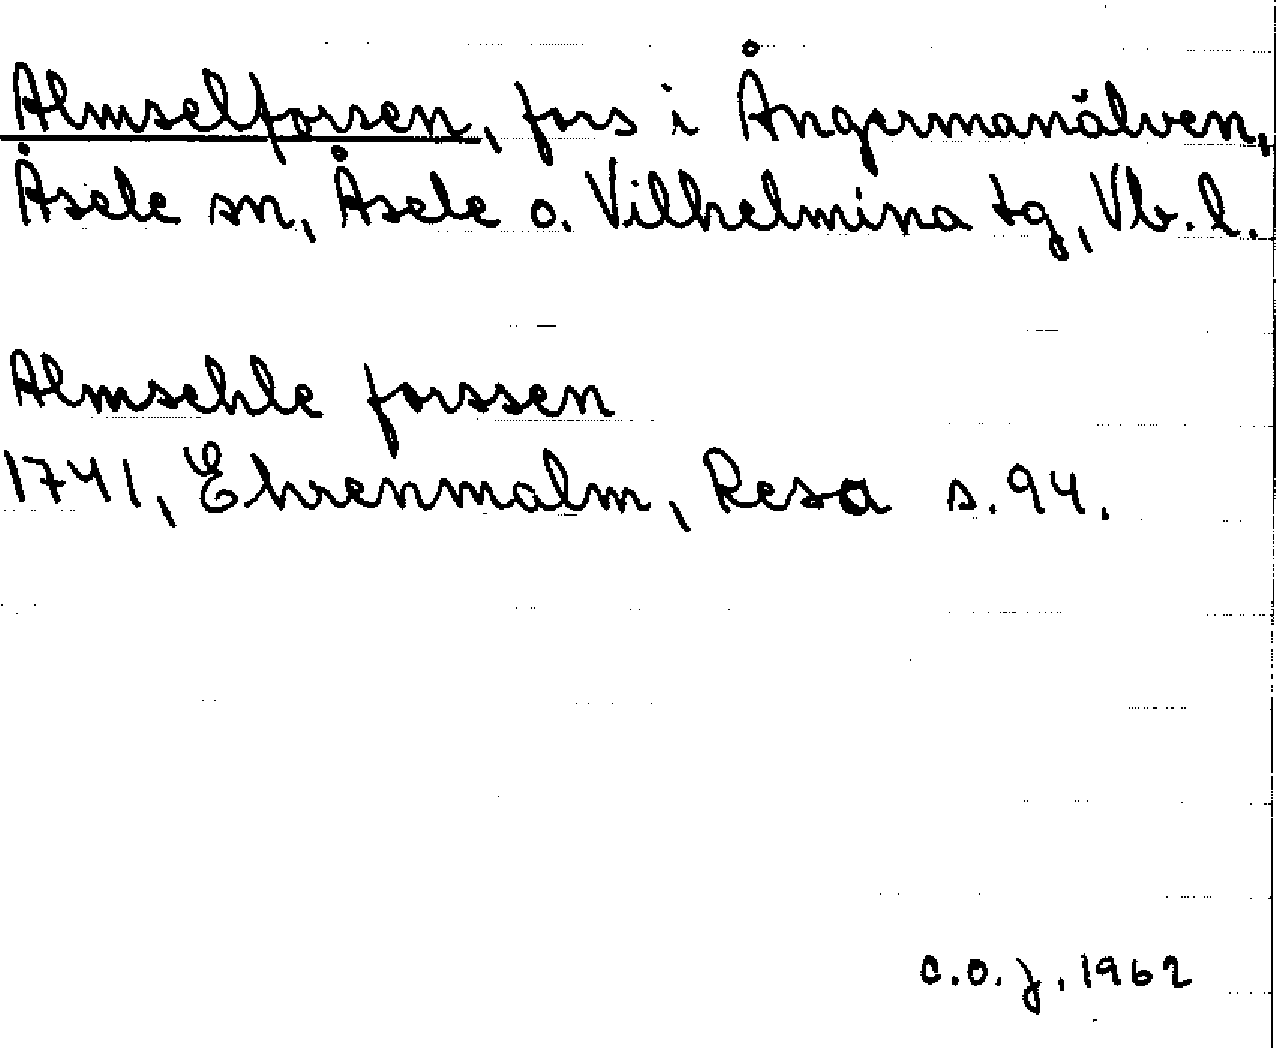 Almselforsen, fors i Ångermanälven,
Åsele sn, Åsele o. Vilhelmina tg, Vb. l.
Almsehle forssen
1741, Ehrenmalm, Resa s. 94.
C.O.J. 1962